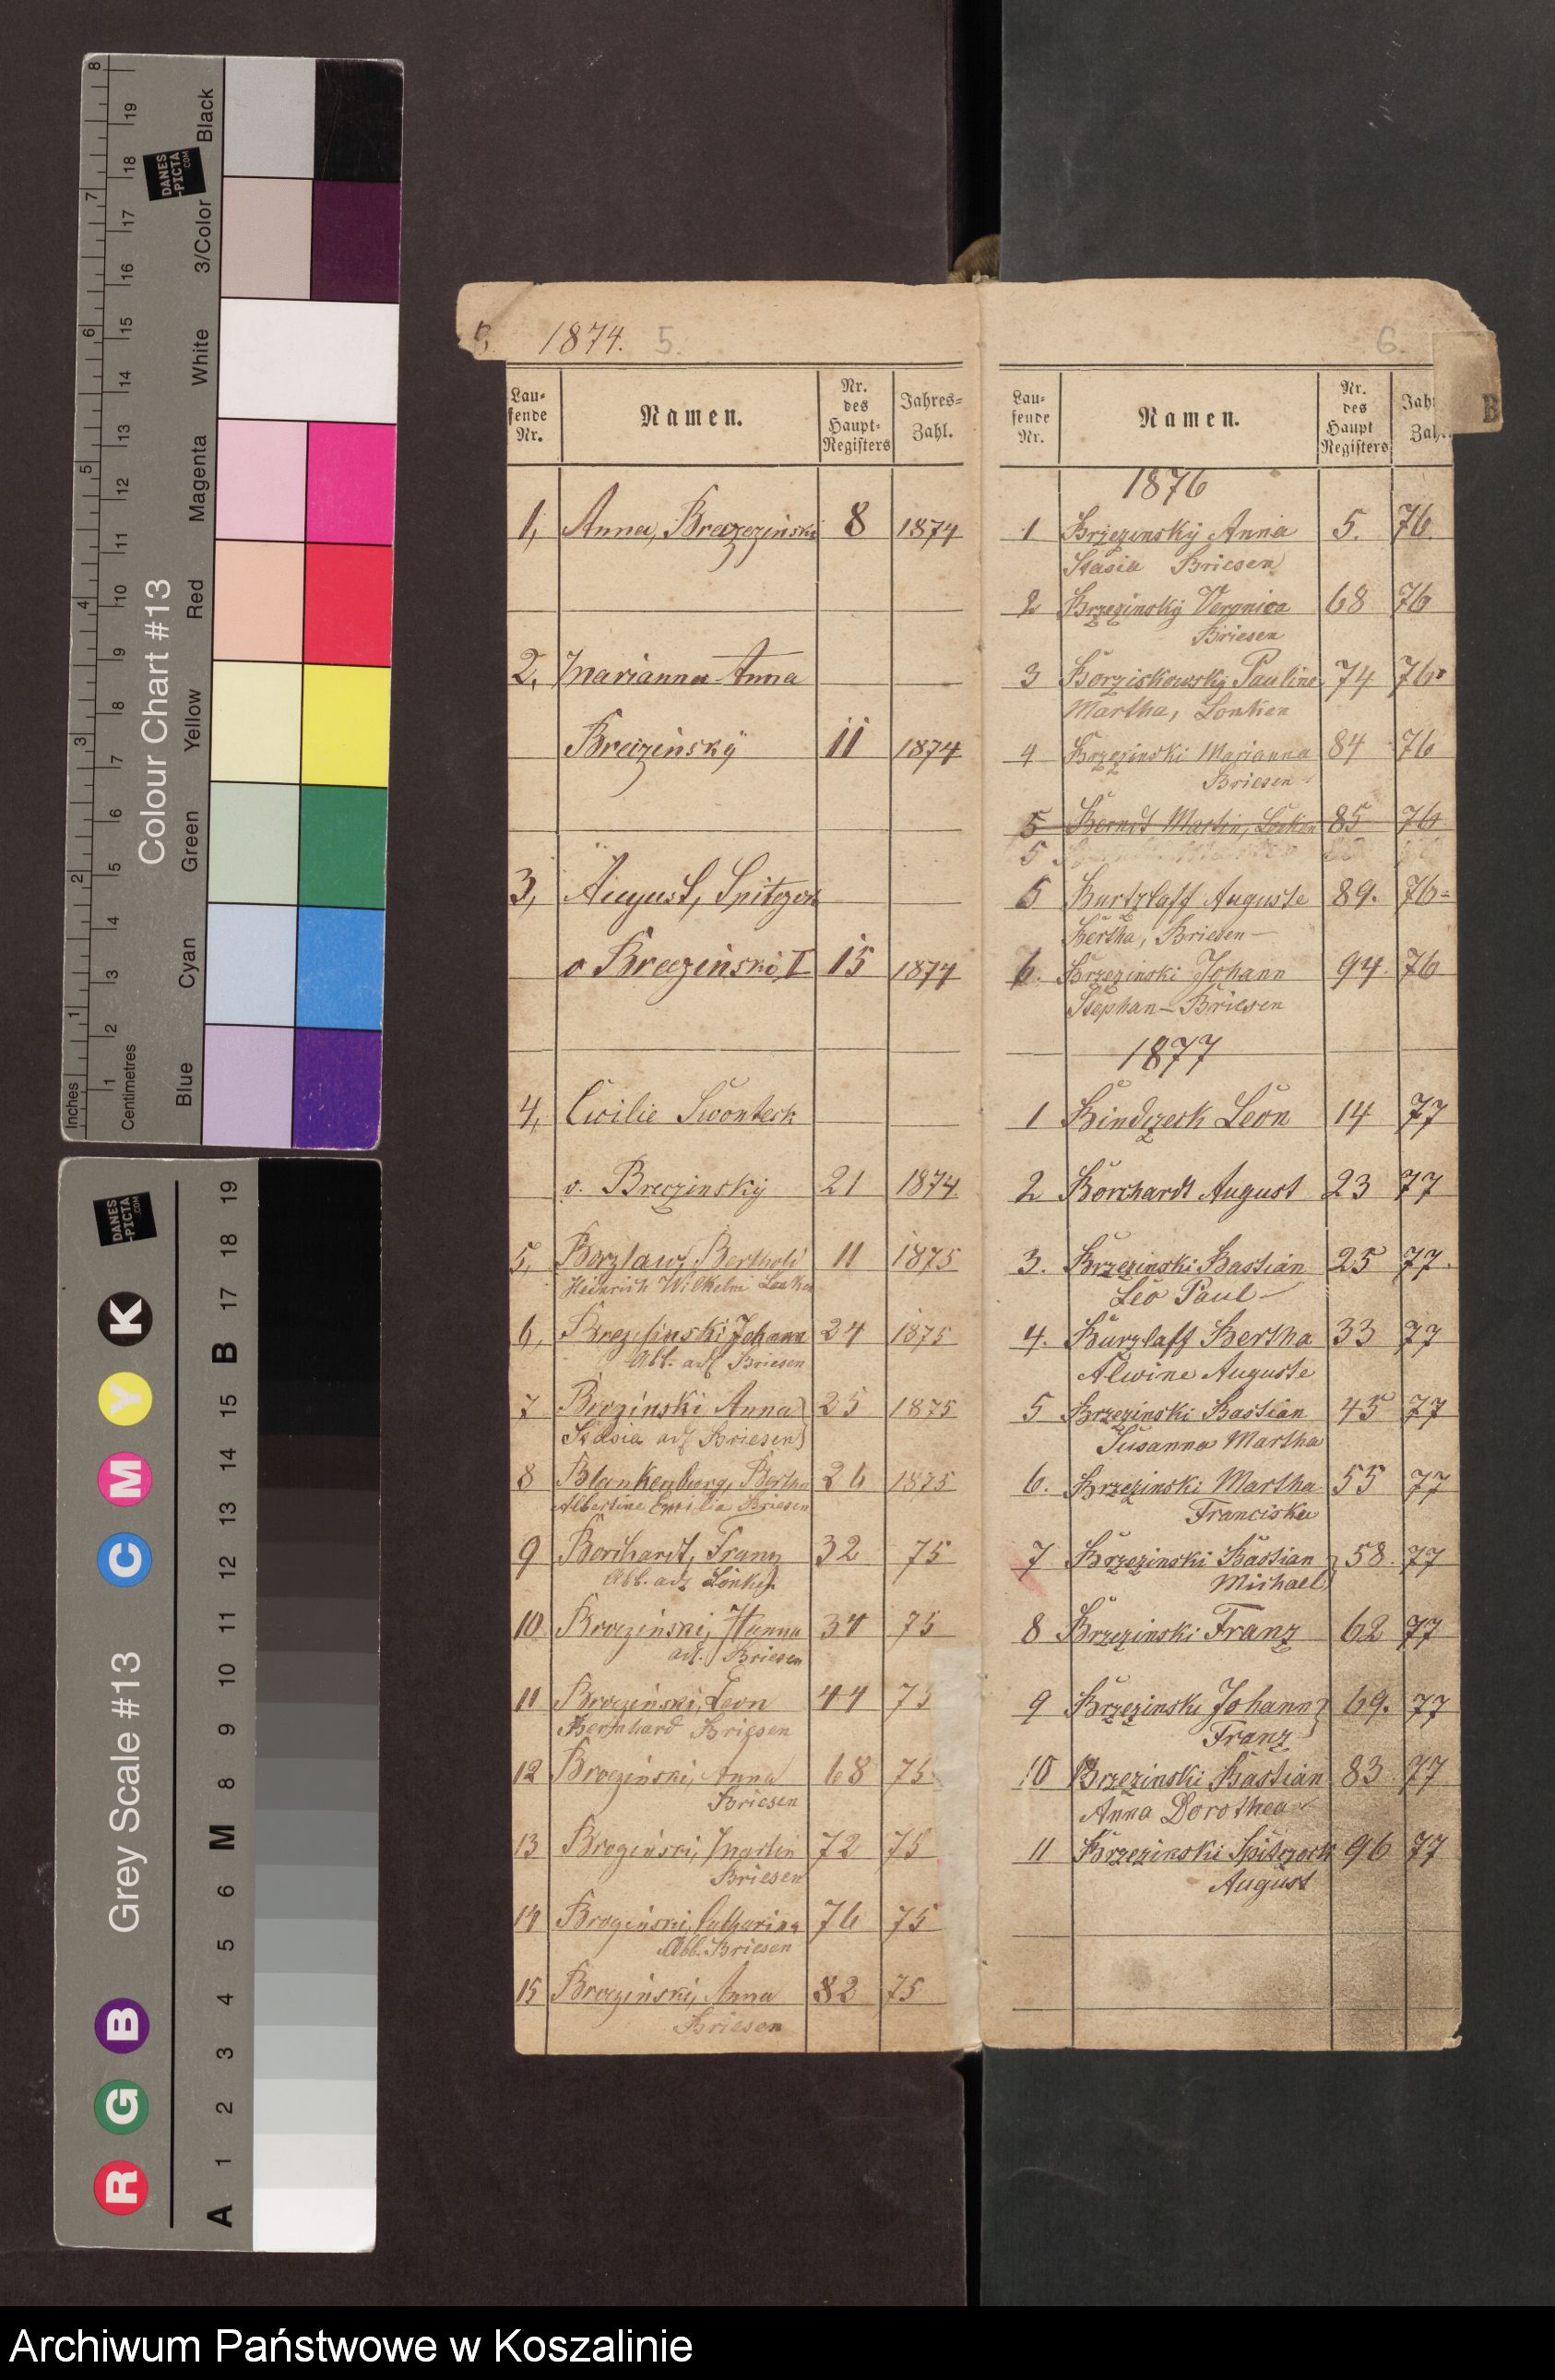 8
7
6
5
4
3
2
1
Inches
19
18
17
16
15
14
13
12
11
10
9
8
7
6
5
4
3
2
1
Centimetres
DANES
-PICTA
.COM
Colour Chart #13
Black
3/Color
White
Magenta
Red
Yellow
Green
Cyan
Blue
DANES
-PICTA
.COM
Grey Scale #13
R G B C M Y K
A 1 2 3 4 5 6 M 8 9 10 11 12 13 14 15 B 17 18 19
1874. 5.
Lau-
fende
Nr.
Namen.
Nr.
des
Haupt-
Registers
Jahres-
Zahl.
1, Anna, 8 1874
2, Marianna Anna
11 1874
3, August,
v 15 1874
4,
v. Breczinsky 21 1874
5, 11 1875
Heinrich Wilhelm
6, Johann 24 1875
Abb. Briesen
7 Anna 25 1875
Briesen
8 Blankenburg, 26 1875
Albertine Emilia Briesen
9 Borchardt, Franz 32 75
Abb.
10 34 75
Briesen
11 Leon 44 75
Bernhard Briesen
12 Anna 68 75
Briesen
13 Martin 72 75
Briesen
14 Catharina 76 75
Abb. Briesen
15 Anna 82 75
Briesen
6.
B
Lau-
fende
Nr.
Namen.
Nr.
des
Haupt
Registers
Jah
Zahl.
1876
1 Brzezinsky Anna 5. 76.
Stasia Briesen
2 Brzezinsky Veronica 68 76
Briesen
3 Borziskowsky Pauline 74 76
Martha, Lonken
4 Brzezinski Marianna 84 76
Briesen
5 Berndt Martin, Lonken 85 76
5
5 Burtzlaff Auguste 89. 76
Bertha, Briesen
6. Brzezinski Johann 94. 76
Stephan - Briesen
1877
1 Bindczeck Leon 14 77
2 Borchardt August 23 77
3. Brzezinski Bastian 25 77.
Leo Paul
4. Burzlaff Bertha 33 77
Alwine Auguste
5 Brzezinski Bastian 45 77
Susanna Martha
6. Brzezinski Martha 55 77
Franciska
7 Brzezinski Bastian 58. 77
Michael
8 Brzezinski Franz 62 77
9 Brzezinski Johann 69. 77
Franz
10 Brzezinski Bastian 83 77
Anna Dorothea
11 Brzezinski Spitczock 96 77
August
Archiwum Państwowe w Koszalinie